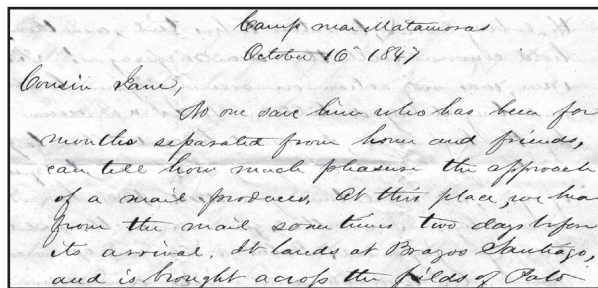 Camp near Matamoras
October 16th 1847
Cousin Jane,
No one save him who has been for
months separated from home and friends,
can tell how much pleasure the approach
of a mail produces. At this place, we hear
from the mail sometimes two days before
its arrival. It lands at Brazos Santiago,
and is brought across the fields of Palo